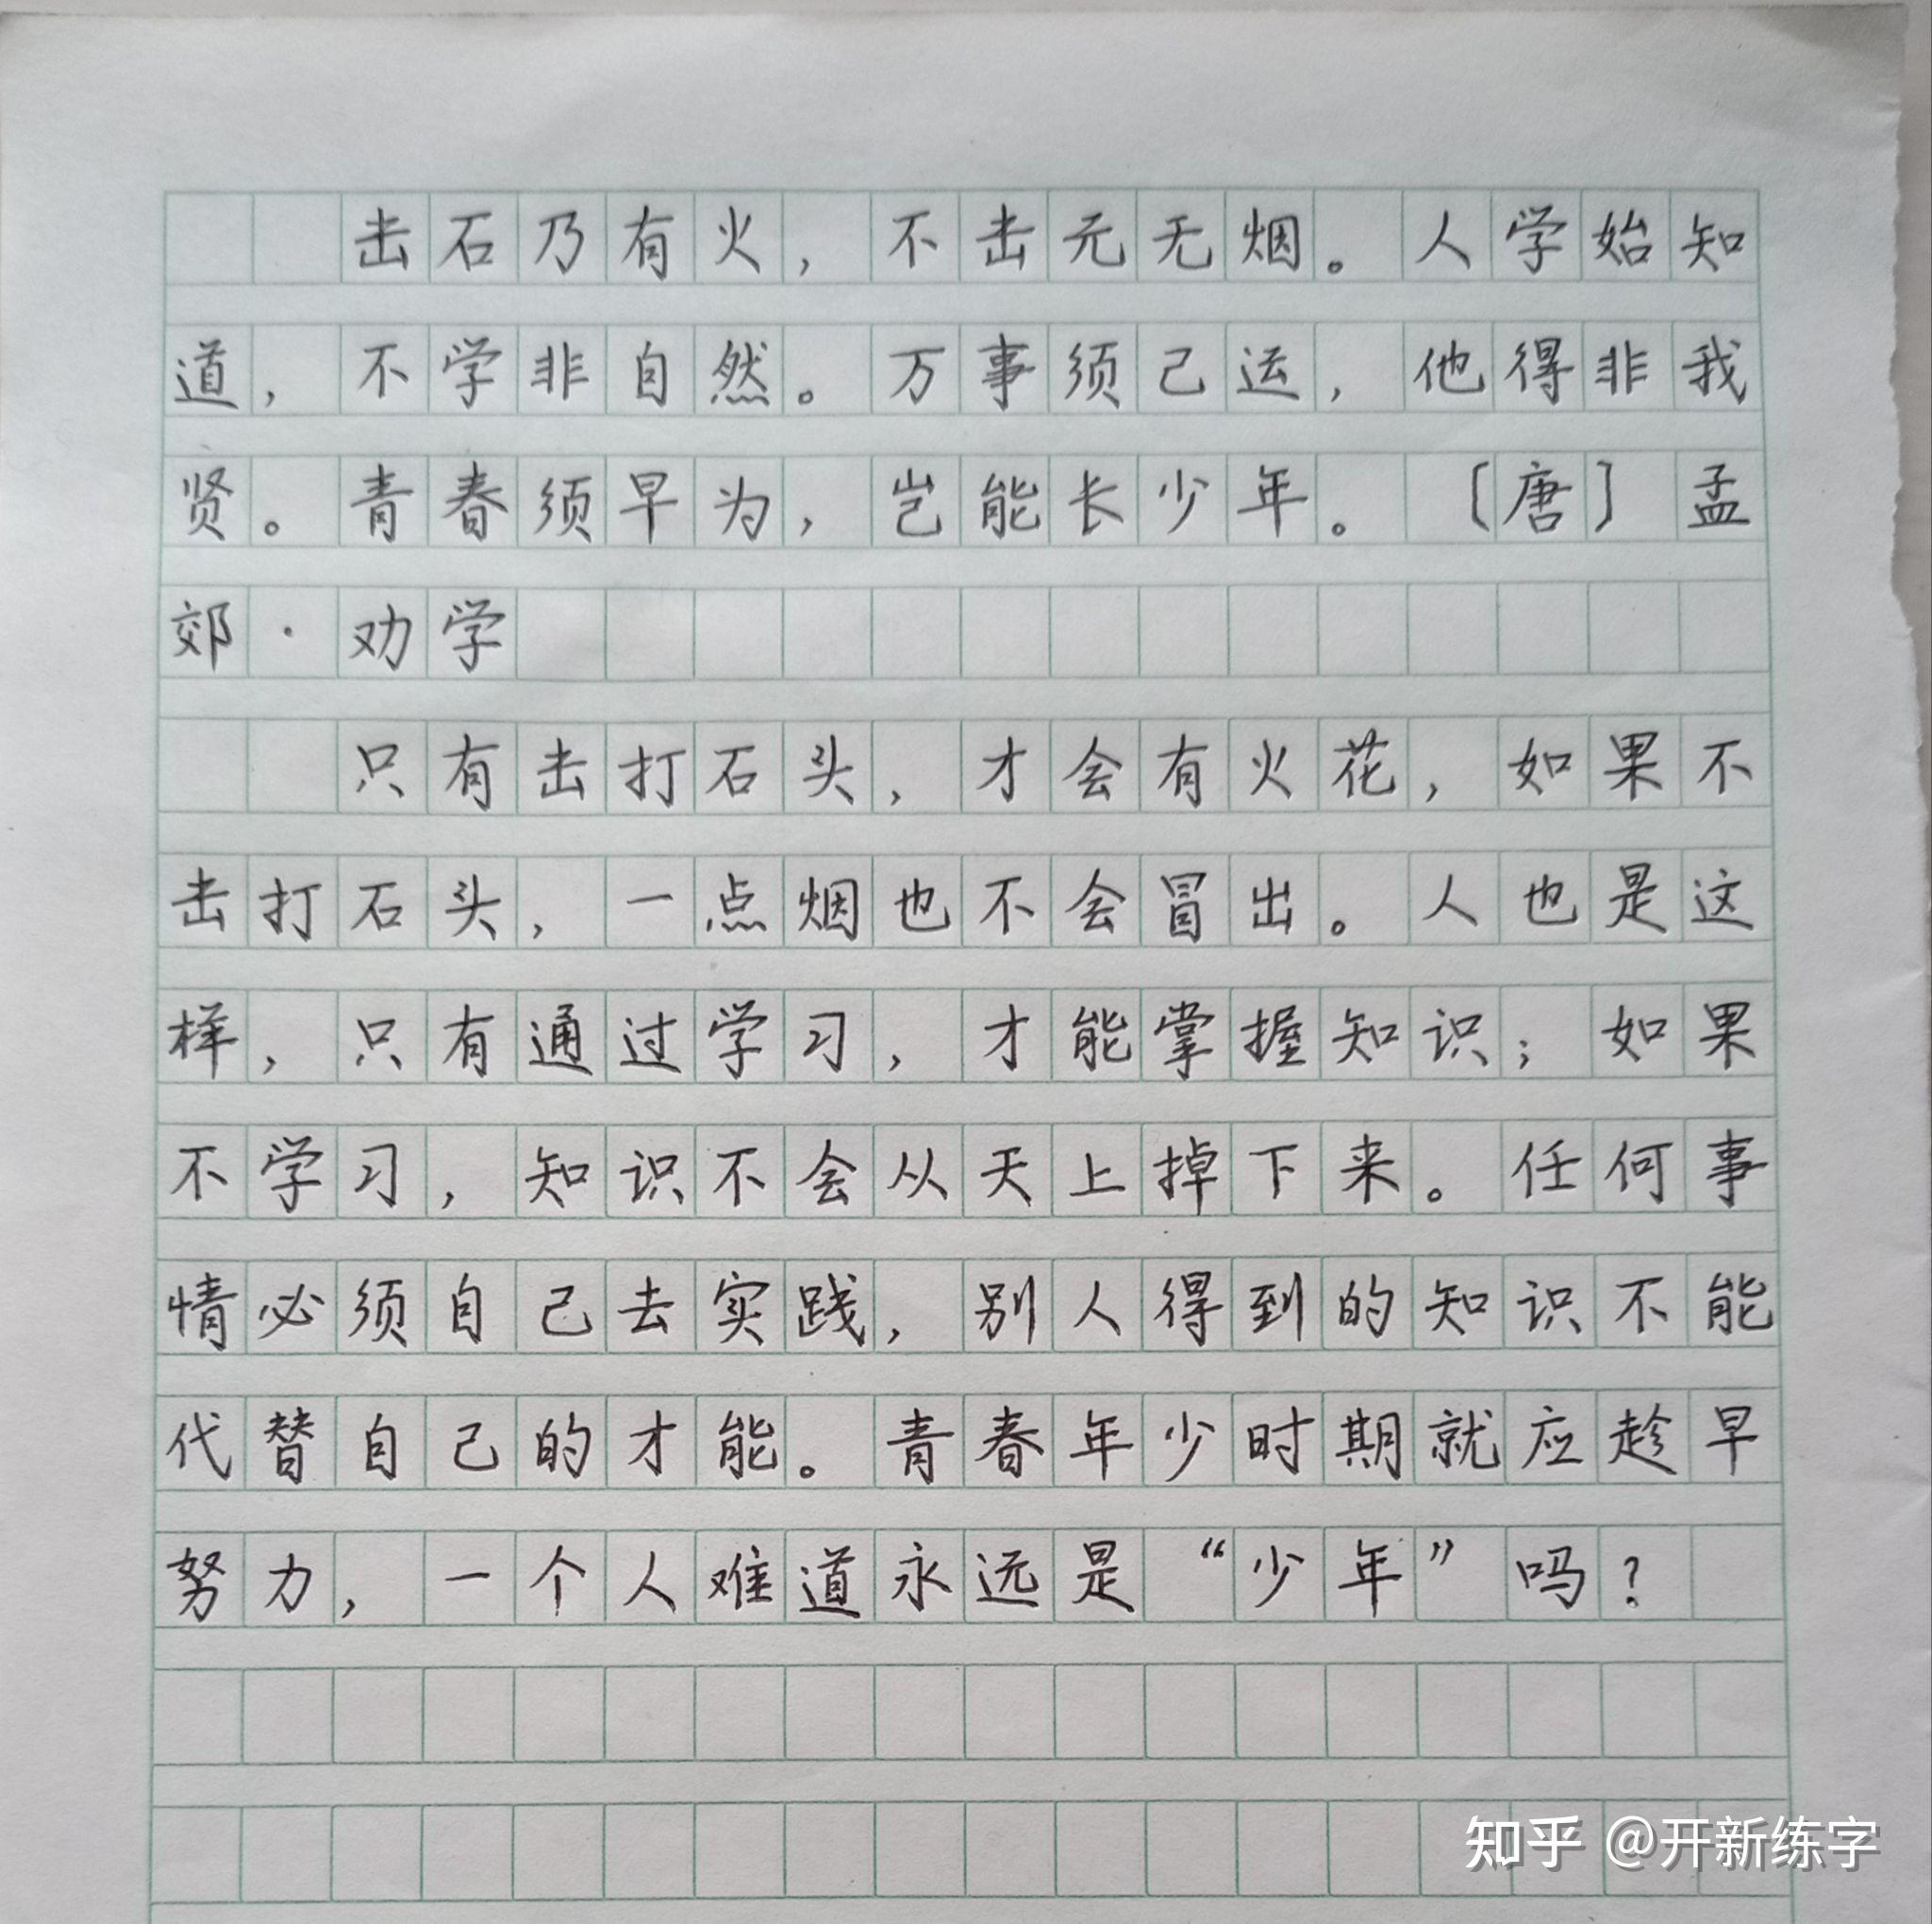 击石乃有火，不击元无烟。人学始知
道，不学非自然。万事须己运，他得非我
贤。青春须早为，岂能长少年。〔唐〕孟
郊·劝学
只有击打石头，才会有火花，如果不
击打石头，一点烟也不会冒出。人也是这
样，只有通过学习，才能掌握知识；如果
不学习，知识不会从天上掉下来。任何事
情必须自己去实践，别人得到的知识不能
代替自己的才能。青春年少时期就应趁早
努力，一个人难道永远是“少年”吗？
知乎 @开新练字